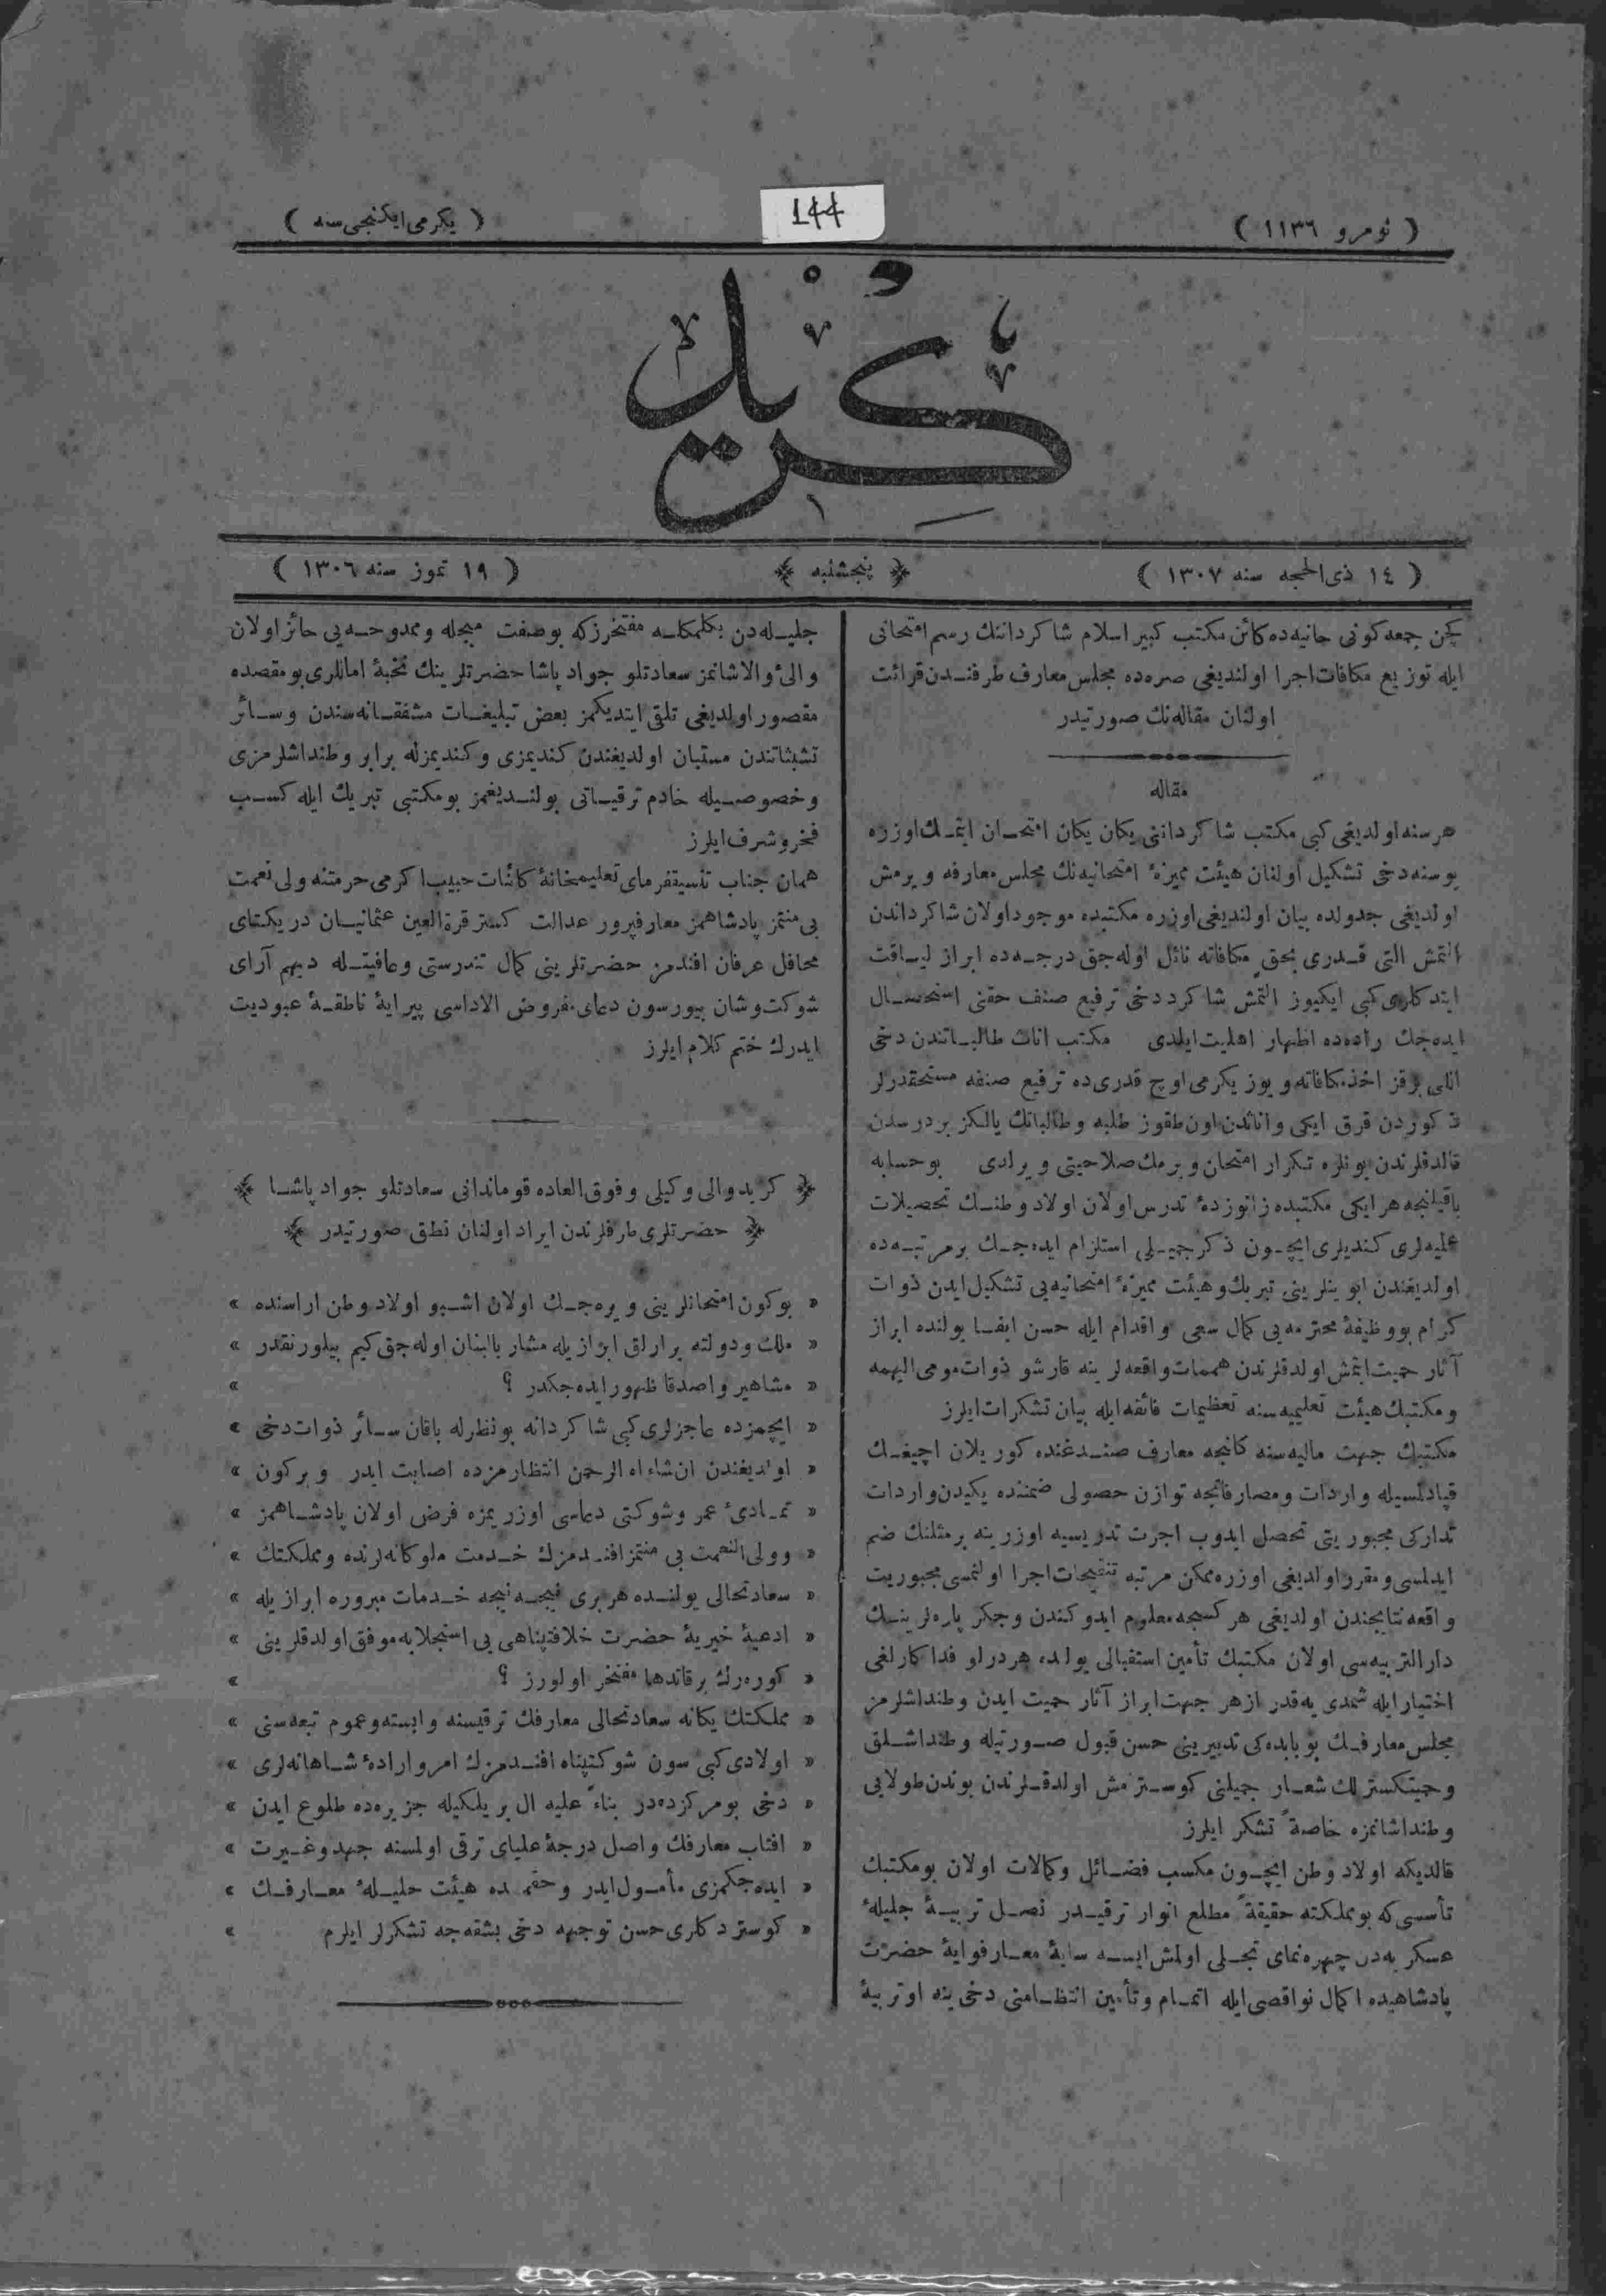 ( نومرو ١١٣٦ )
144
( یكرمی ایكنجی سنه )
كرید
( ١٤ ذی الحجه سنه ١٣٠٧ )
پنجشنبه
( ١٩ تموز سنه ١٣٠٦ )
كچن جمعه كونی حانیه ده كائن مكتب كبیر اسلام شاكرداننك رسم امتحانی
ایله توزیع مكافات اجرا اولندیغی صره ده مجلس معارف طرفنـدن قرائت
اولنان مقاله نك صورتیدر
مقاله
هر سنه اولدیغی كبی مكتب شاكرداننی یكان یكان امتحـان ایتمـك اوزره
بو سنه دخی تشكیل اولنان هیئت ممیزۀ امتحانیه نك مجلس معارفه ویرمش
اولدیغی جدولده بیان اولندیغی اوزره مكتبده موجود اولان شاكرداندن
التمش التی قـدری بحق مكافاته نائل اوله جق درجـه ده ابراز لیـاقت
ایتدكلری كبی ایكیوز التمش شاكرد دخی ترفیع صنف حقنی استحصـال
ایده جك راده ده اظهار اهلیت ایلدی مكتب اناث طالبـاتندن دخی
اللی بر قز اخذ مكافاته و یوز یكرمی اوچ قدری ده ترفیع صنفه مستحقدرلر
ذكوردن قرق ایكی و اناثدن اون طقوز طلبه و طالباتك یالكز بر درسدن
قالدقلرندن بونلره تكرار امتحان ویرمك صلاحیتی ویرلدی بو حسابه
باقیلنجه هر ایكی مكتبده زانوزدۀ تدرس اولان اولاد وطنـك تحصیلات
علیه لری كندیلری ایچـون ذكر جمیـلی استلزام ایده جـك بر مرتبـه ده
اولدیغندن ابوینلرینی تبریك و هیئت ممیزۀ امتحانیه یی تشكیل ایدن ذوات
كرام بو وظیفۀ محترمه یی كمال سعی و اقدام ایله حسن ایفـا یولنده ابراز
آثار حمیت ایتمش اولدقلرندن همتات واقعه لرینه قارشو ذوات مومی الیهمه
و مكتبك هیئت تعلیمیه سنه تعظیمات فائقه ایله بیان تشكرات ایلرز
مكتبك جهت مالیه سنه كلنجه معارف صنـدغنده كوریلان اچیغـك
قپادلمسیله واردات و مصارفاتجه توازن حصولی ضمننده یكیدن واردات
تداركی مجبوریتی تحصل ایدوب اجرت تدریسیه اوزرینه بر مثلنك ضم
ایدلمسی و مقرر اولدیغی اوزره ممكن مرتبه تنقیحات اجرا اولنمسی مجبوریت
واقعه نتایجندن اولدیغی هر كسجه معلوم ایدوكندن و جكر پاره لرینـك
دار التربیه سی اولان مكتبك تأمین استقبالی یولنده هر درلو فداكارلغی
اختیار ایله شمدی یه قدر از هر جهت ابراز آثار حمیت ایدن وطنداشلرمز
مجلس معارفـك بو بابده كی تدبیرینی حسن قبول صـورتیله وطنداشـلق
و حمیتكسترلك شعـار جمیلنی كوسـترمش اولدقـلرندن بوندن طولایی
وطنداشانمزه خاصةً تشكر ایلرز
قالدیكه اولاد وطن ایچـون مكسب فضـائل و كمالات اولان بو مكتبك
تأسسی كه بو مملكته حقیقةً مطلع انوار ترقیـدر نصـل تربیـۀ جلیلۀ
عسكریه دن چهره نمای تجـلی اولمش ایسـه سایۀ معـارفوایۀ حضرت
پادشاهیده اكمال نواقصی ایله اتمـام و تأمین انتظـامنی دخی ینه او تربیۀ
جلیـله دن بكلمكلـه مفتخرز كه بو صفت مبجله و ممدوحـه یی حائز اولان
والئ والاشانمز سعادتلو جواد پاشا حضرتلرینك نخبۀ امللری بو مقصده
مقصور اولدیغی تلقی ایتدیكمز بعض تبلیغـات مشفقـانه سندن و سـائر
تشبثاتندن مستبان اولدیغندن كندیمزی و كندیمزله برابر وطنداشلرمزی
و خصوصـیله خادم ترقیـاتی بولنـدیغمز بو مكتبی تبریك ایله كسـب
فخر و شرف ایلرز
همان جناب تنسیقفرمای تعلیمخانۀ كائنات حبیب اكرمی حرمتنه ولی نعمت
بی منتمز پادشاهمز معارفپرور عدالت كستر قرة العین عثمانیـان در یكتای
محافل عرفان افندمز حضرتلرینی كمال تندرستی و عافیتـله دیهیم آرای
شوكت و شان بیورسون دعای مفروض الاداسی پیرایۀ ناطقـۀ عبودیت
ایدرك ختم كلام ایلرز
كرید والی وكیلی و فوق العاده قوماندانی سعادتلو جواد پاشـا
حضرتلری طرفلرندن ایراد اولنان نطق صورتیدر
« بوكون امتحانلرینی ویره جـك اولان اشـبو اولاد وطن اراسنده »
« ملك و دولته یرارلق ابرازیله مشار بالبنان اوله جق كیم بیلور نقدر »
« مشاهیر و اصدقا ظهور ایده جكدر ؟ »
« ایچمزده عاجزلری كبی شاكردانه بو نظرله باقان سـائر ذوات دخی »
« اولدیغندن ان شاء الله الرحمن انتظارمزده اصابت ایدر و بركون »
« تمـادئ عمر و شوكتی دعاسی اوزریمزه فرض اولان پادشـاهمز »
« و ولی النعمت بی منتمز افنـدمزك خـدمت ملوكانه لرنده و مملكتك »
« سعادتحالی یولنـده هر بری نیجـه نیجه خـدمات مبروره ابرازیله »
« ادعیۀ خیریۀ حضرت خلافتپناهی یی استجلابه موفق اولدقلرینی »
« كوره رك بر قاتدها مفتخر اولورز ؟ »
« مملكتك یكانه سعادتحالی معارفك ترقیسنه وابسته و عموم تبعه سنی »
« اولادی كبی سون شوكتپناه افنـدمزك امر و ارادۀ شـاهانه لری »
« دخی بو مركزده در بناءً علیه ال بریلكیله جزیره ده طلوع ایدن »
« افتاب معارفك واصل درجۀ علیای ترقی اولمسنه جهد و غـیرت »
« ایده جكمزی مأمـول ایدر و حقمـده هیئت جلیـلۀ معـارفـك »
« كوستردكلری حسن توجهه دخی بشقه جه تشكرلر ایلرم »